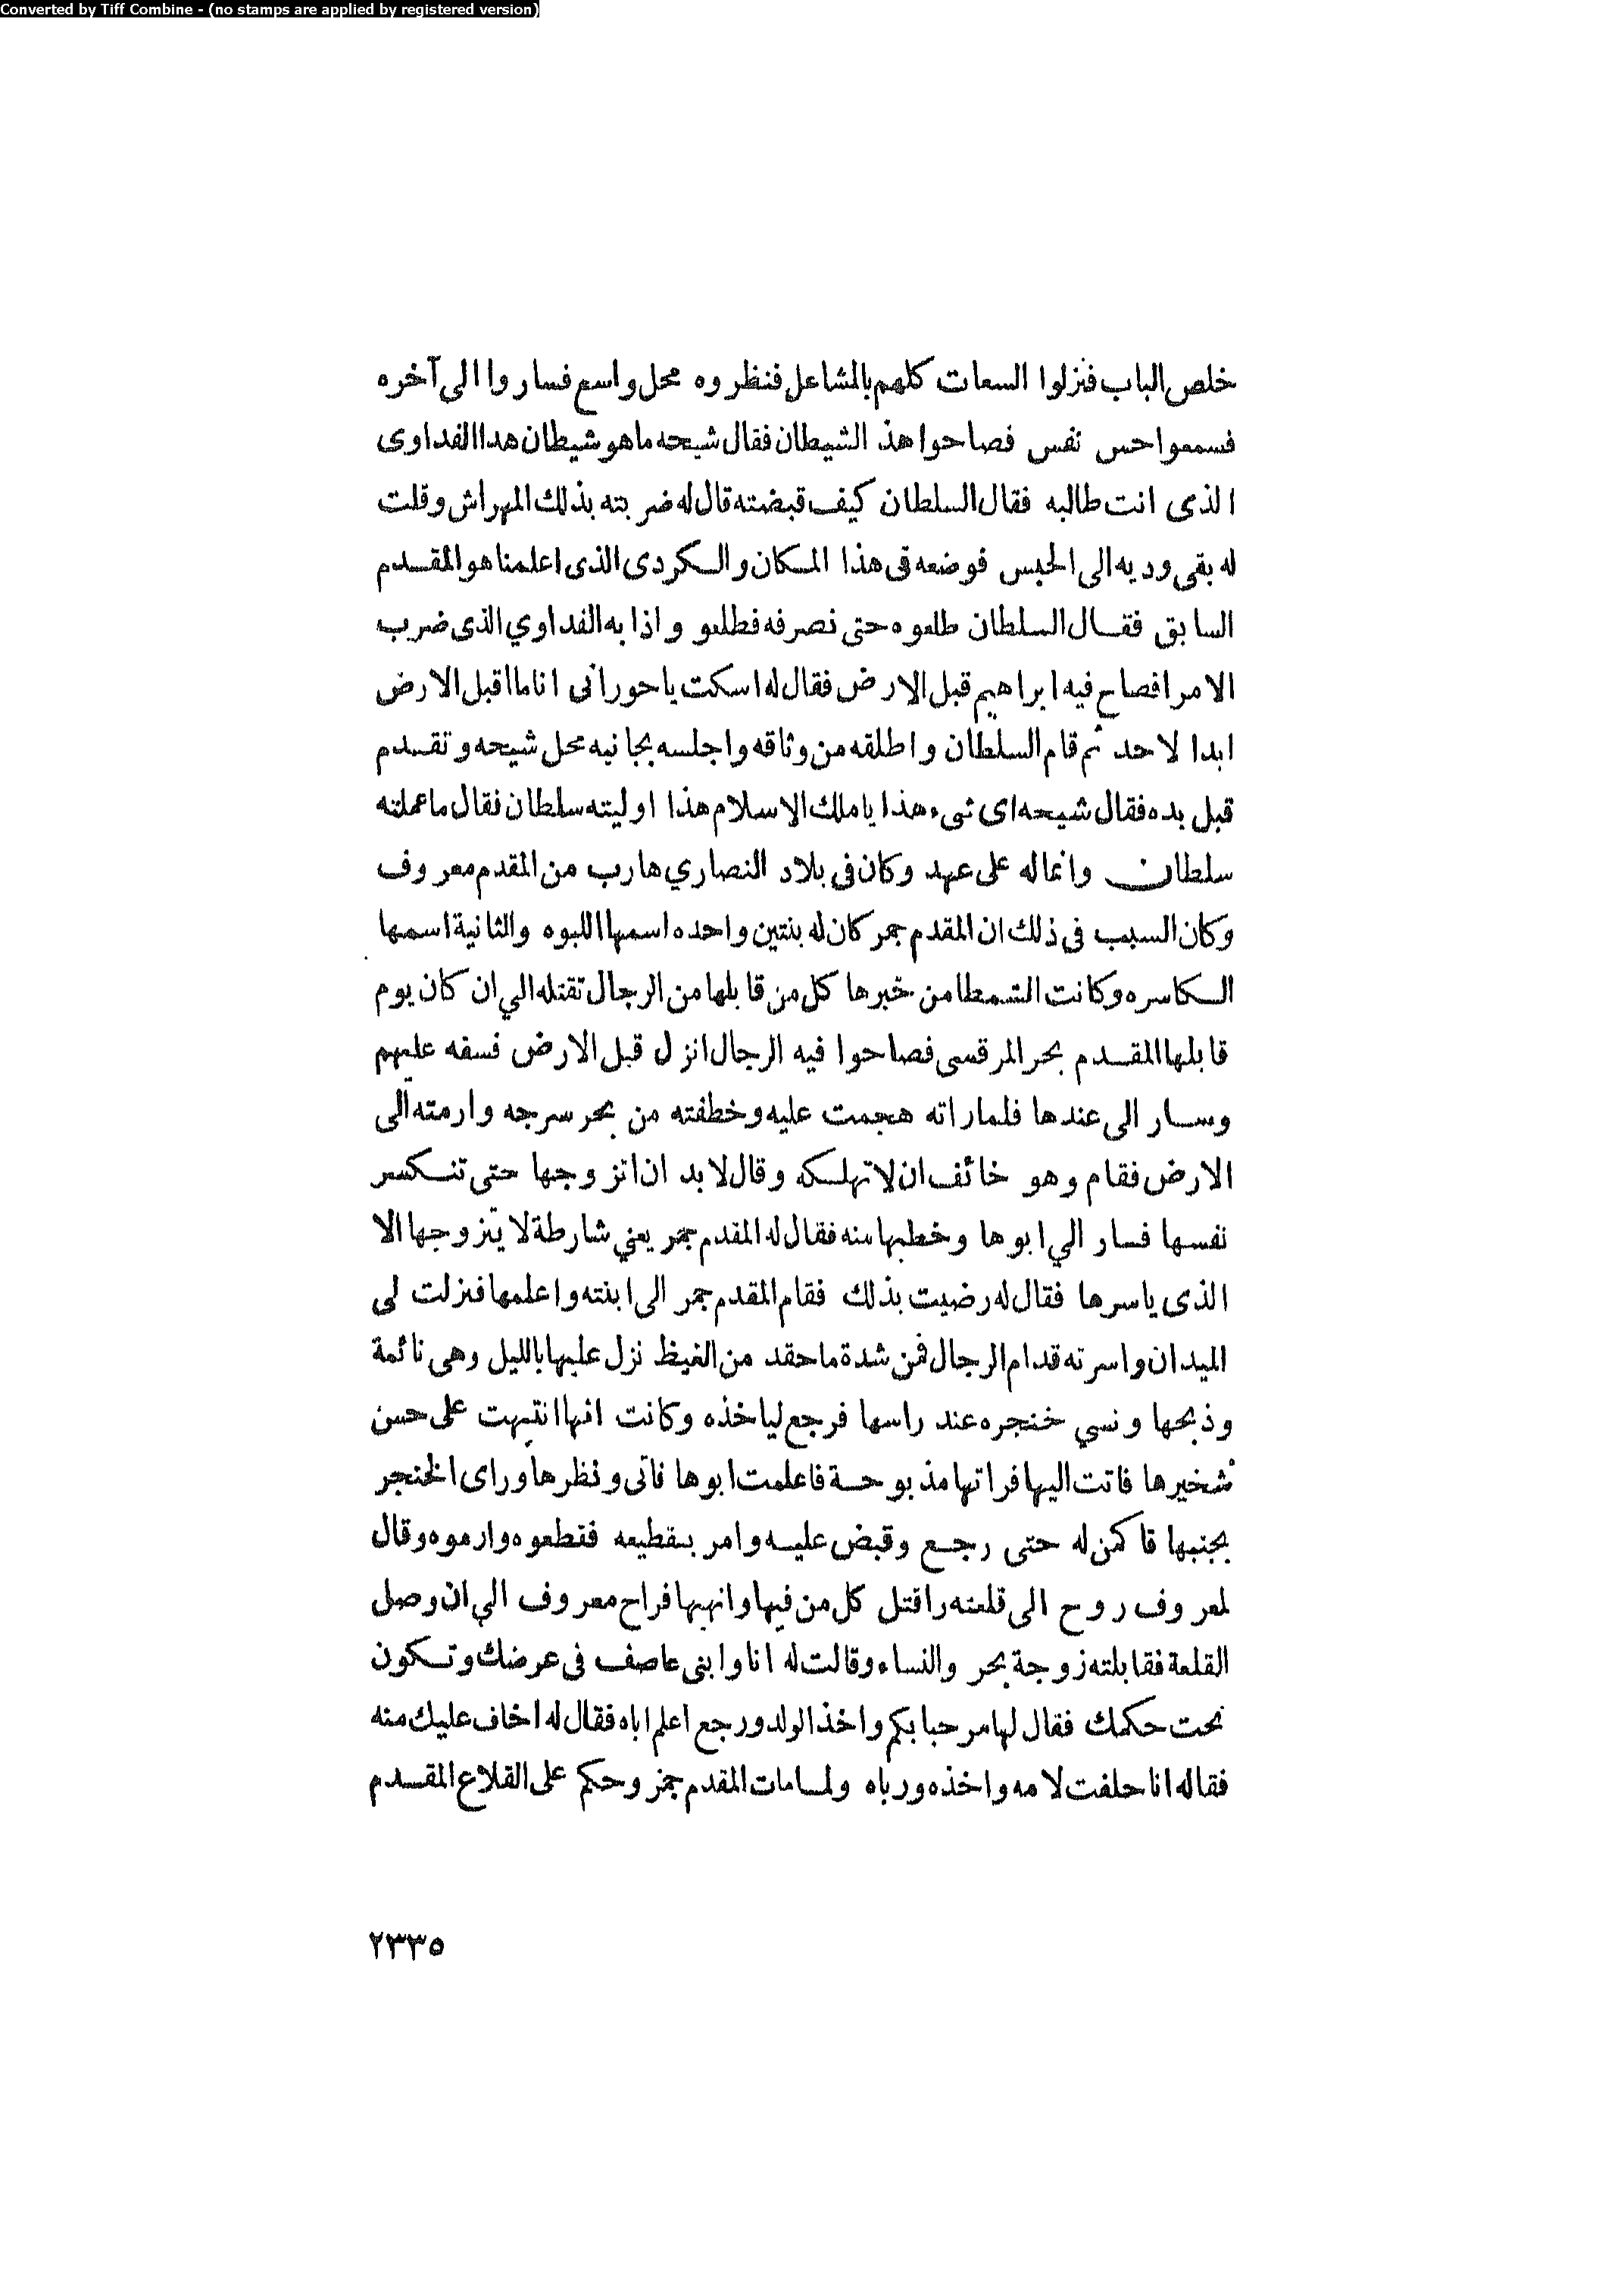 Converted by Tiff Combine - (no stamps are applied by registered version)
خلص الباب فنزلوا السعات كلهم بالمشاعل فنظروه محل واسع فساروا الى آخره
فسمعوا حس نفس فصاحوا هذ الشيطان فقال شيحه ماهو شيطان هدا الفداوى
الذى انت طالبه فقال السلطان كيف قبضته قال له ضربته بذلك المهراش وقلت
له بقى وديه الى الحبس فوضعه فى هذا المكان والكردى الذى اعلمنا هو المقدم
السابق فقال السلطان طلعوه حتى نصرفه فطلعو واذا به الفداوي الذى ضرب
الامرا فصاح فيه ابراهيم قبل الارض فقال له اسكت يا حورانى انا ما اقبل الارض
ابدا لاحد ثم قام السلطان واطلقه من وثاقه واجلسه بجانبه محل شيحه وتقدم
قبل يده فقال شيحه اى شىء هذا يا ملك الاسلام هذا اوليته سلطان فقال ماعملته
سلطان وانما له على عهد وكان فى بلاد النصاري هارب من المقدم معروف
وكان السبب فى ذلك ان المقدم جمر كان له بنتين واحده اسمها اللبوه والثانية اسمها
الكاسره وكانت الشمطا من خبرها كل من قابلها من الرجال تقتله الي ان كان يوم
قابلها المقدم بحر المرقسى فصاحوا فيه الرجال انزل قبل الارض فسفه عليهم
وسار الى عندها فلما راته هجمت عليه وخطفته من بحر سرجه وارمته الى
الارض فقام وهو خائف ان لا تهلكه وقال لابد ان اتزوجها حتى تنكسر
نفسها فسار الي ابوها وخطبها منه فقال له المقدم جمر يعني شارطة لا يتزوجها الا
الذى ياسرها فقال له رضيت بذلك فقام المقدم جمر الى ابنته واعلمها فنزلت لى
الميدان واسرته قدام الرجال فمن شدة ماحقد من الغيظ نزل عليها بالليل وهى نائمة
وذبحها ونسي خنجره عند راسها فرجع لياخذه وكانت انها انتبهت على حس
شخيرها فاتت اليها فراتها مذبوحة فاعلمت ابوها فاتى ونظرها وراى الخنجر
بجنبها قاكمن له حتى رجع وقبض عليه وامر بىقطيعه فقطعوه وارموه وقال
لمعروف روح الى قلعته راقتل كل من فيها وانهبها فراح معروف الي ان وصل
القلعة فقابلته زوجة بحر والنساء وقالت له انا وابنى عاصف فى عرضك وتكون
تحت حكمك فقال لها مرحبا بكم واخذ الولد ورجع اعلم اباه فقال له اخاف عليك منه
فقاله انا حلفت لامه واخذه ورباه ولما مات المقدم جمز وحكم على القلاع المقدم
٢٣٣٥